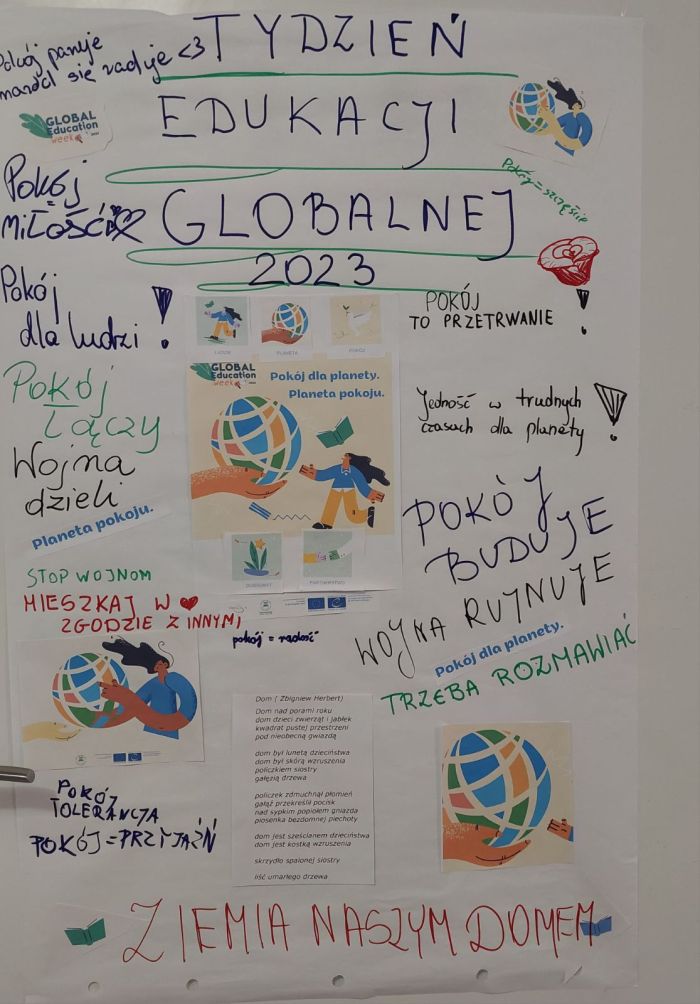 Pokój panuje
naród się raduje <3
TYDZIEŃ
EDUKACJI
GLOBALNEJ
2023
GLOBAL
Education
week
Pokój = szczęście
Pokój =
MIŁOŚĆ
Pokój
dla ludzi!
LUDZIE
PLANETA
POKÓJ
POKÓJ
TO PRZETRWANIE !
GLOBAL
Education
week
Pokój dla planety.
Planeta pokoju.
POKÓJ
Łączy
Wojna
dzieli
Planeta pokoju.
Jedność w trudnych
czasach dla planety !
POKÓJ
BUDUJE
WOJNA RUJNUJE
DOBROBYT
PARTNERSTWO
STOP WOJNOM
MIESZKAJ W ♥
ZGODZIE Z INNYMI
pokój = radość
Pokój dla planety.
TRZEBA ROZMAWIAĆ
Dom ( Zbigniew Herbert)
Dom nad porami roku
dom dzieci zwierząt i jabłek
kwadrat pustej przestrzeni
pod nieobecną gwiazdą
dom był lunetą dzieciństwa
dom był skórą wzruszenia
policzkiem siostry
gałęzią drzewa
policzek zdmuchnął płomień
gałąź przekreślił pocisk
nad sypkim popiołem gniazda
piosenka bezdomnej piechoty
dom jest sześcianem dzieciństwa
dom jest kostką wzruszenia
skrzydło spalonej siostry
liść umarłego drzewa
POKÓJ
TOLERANCJA
POKÓJ = PRZYJAŹŃ
ZIEMIA NASZYM DOMEM